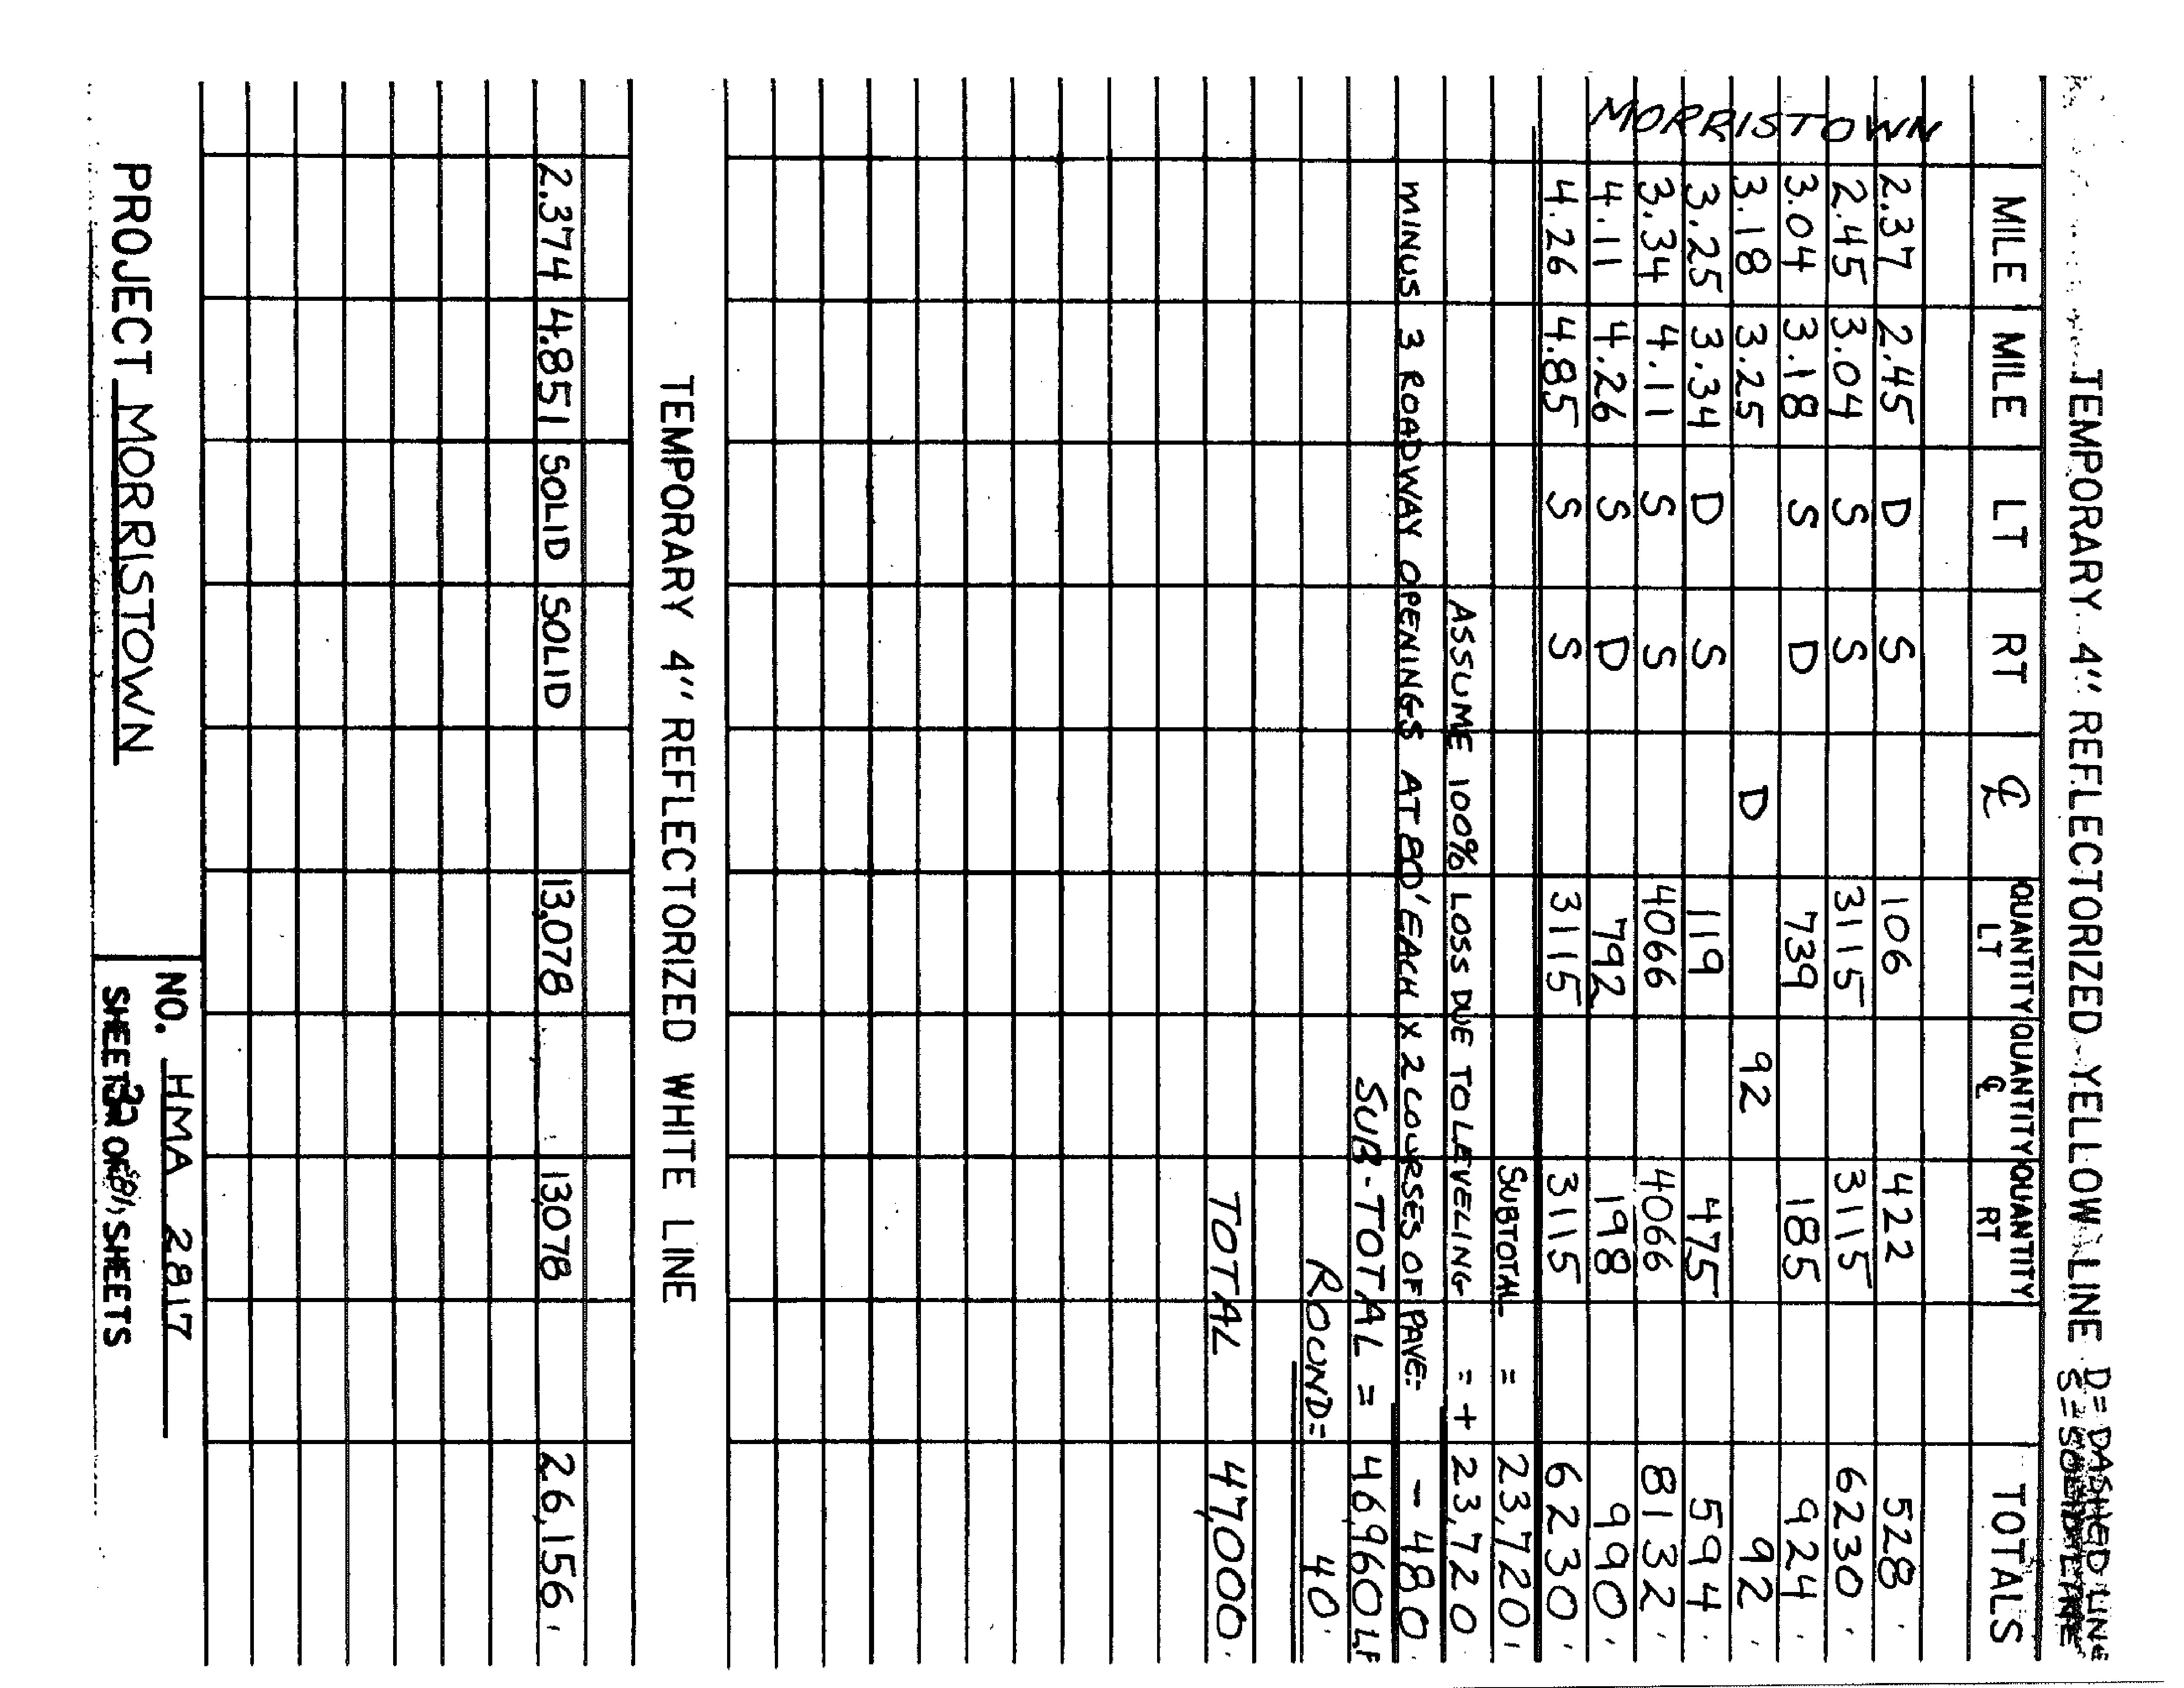 TEMPORARY 4" REFLECTORIZED YELLOW LINE D=DASHED LINE
S=SOLID LINE
MILE MILE LT RT ℄ QUANTITY LT QUANTITY ℄ QUANTITY RT TOTALS
MORRISTOWN
2.37 2.45 D S 106 422 528
2.45 3.04 S S 3115 3115 6230
3.04 3.18 S D 739 185 924
3.18 3.25 D 92 92
3.25 3.34 D S 119 475 594
3.34 4.11 S S 4066 4066 8132
4.11 4.26 S D 792 198 990
4.26 4.85 S S 3115 3115 6230
SUBTOTAL = 23,720
ASSUME 100% LOSS DUE TO LEVELING = + 23,720
MINUS 3 ROADWAY OPENINGS AT 80' EACH X 2 COURSES OF PAVE= - 480
SUB-TOTAL = 46,960 LF
ROUND= 40
TOTAL 47,000
TEMPORARY 4" REFLECTORIZED WHITE LINE
2.374 4.851 SOLID SOLID 13,078 13,078 26,156
PROJECT MORRISTOWN
NO. HMA 2817
SHEET OF SHEETS